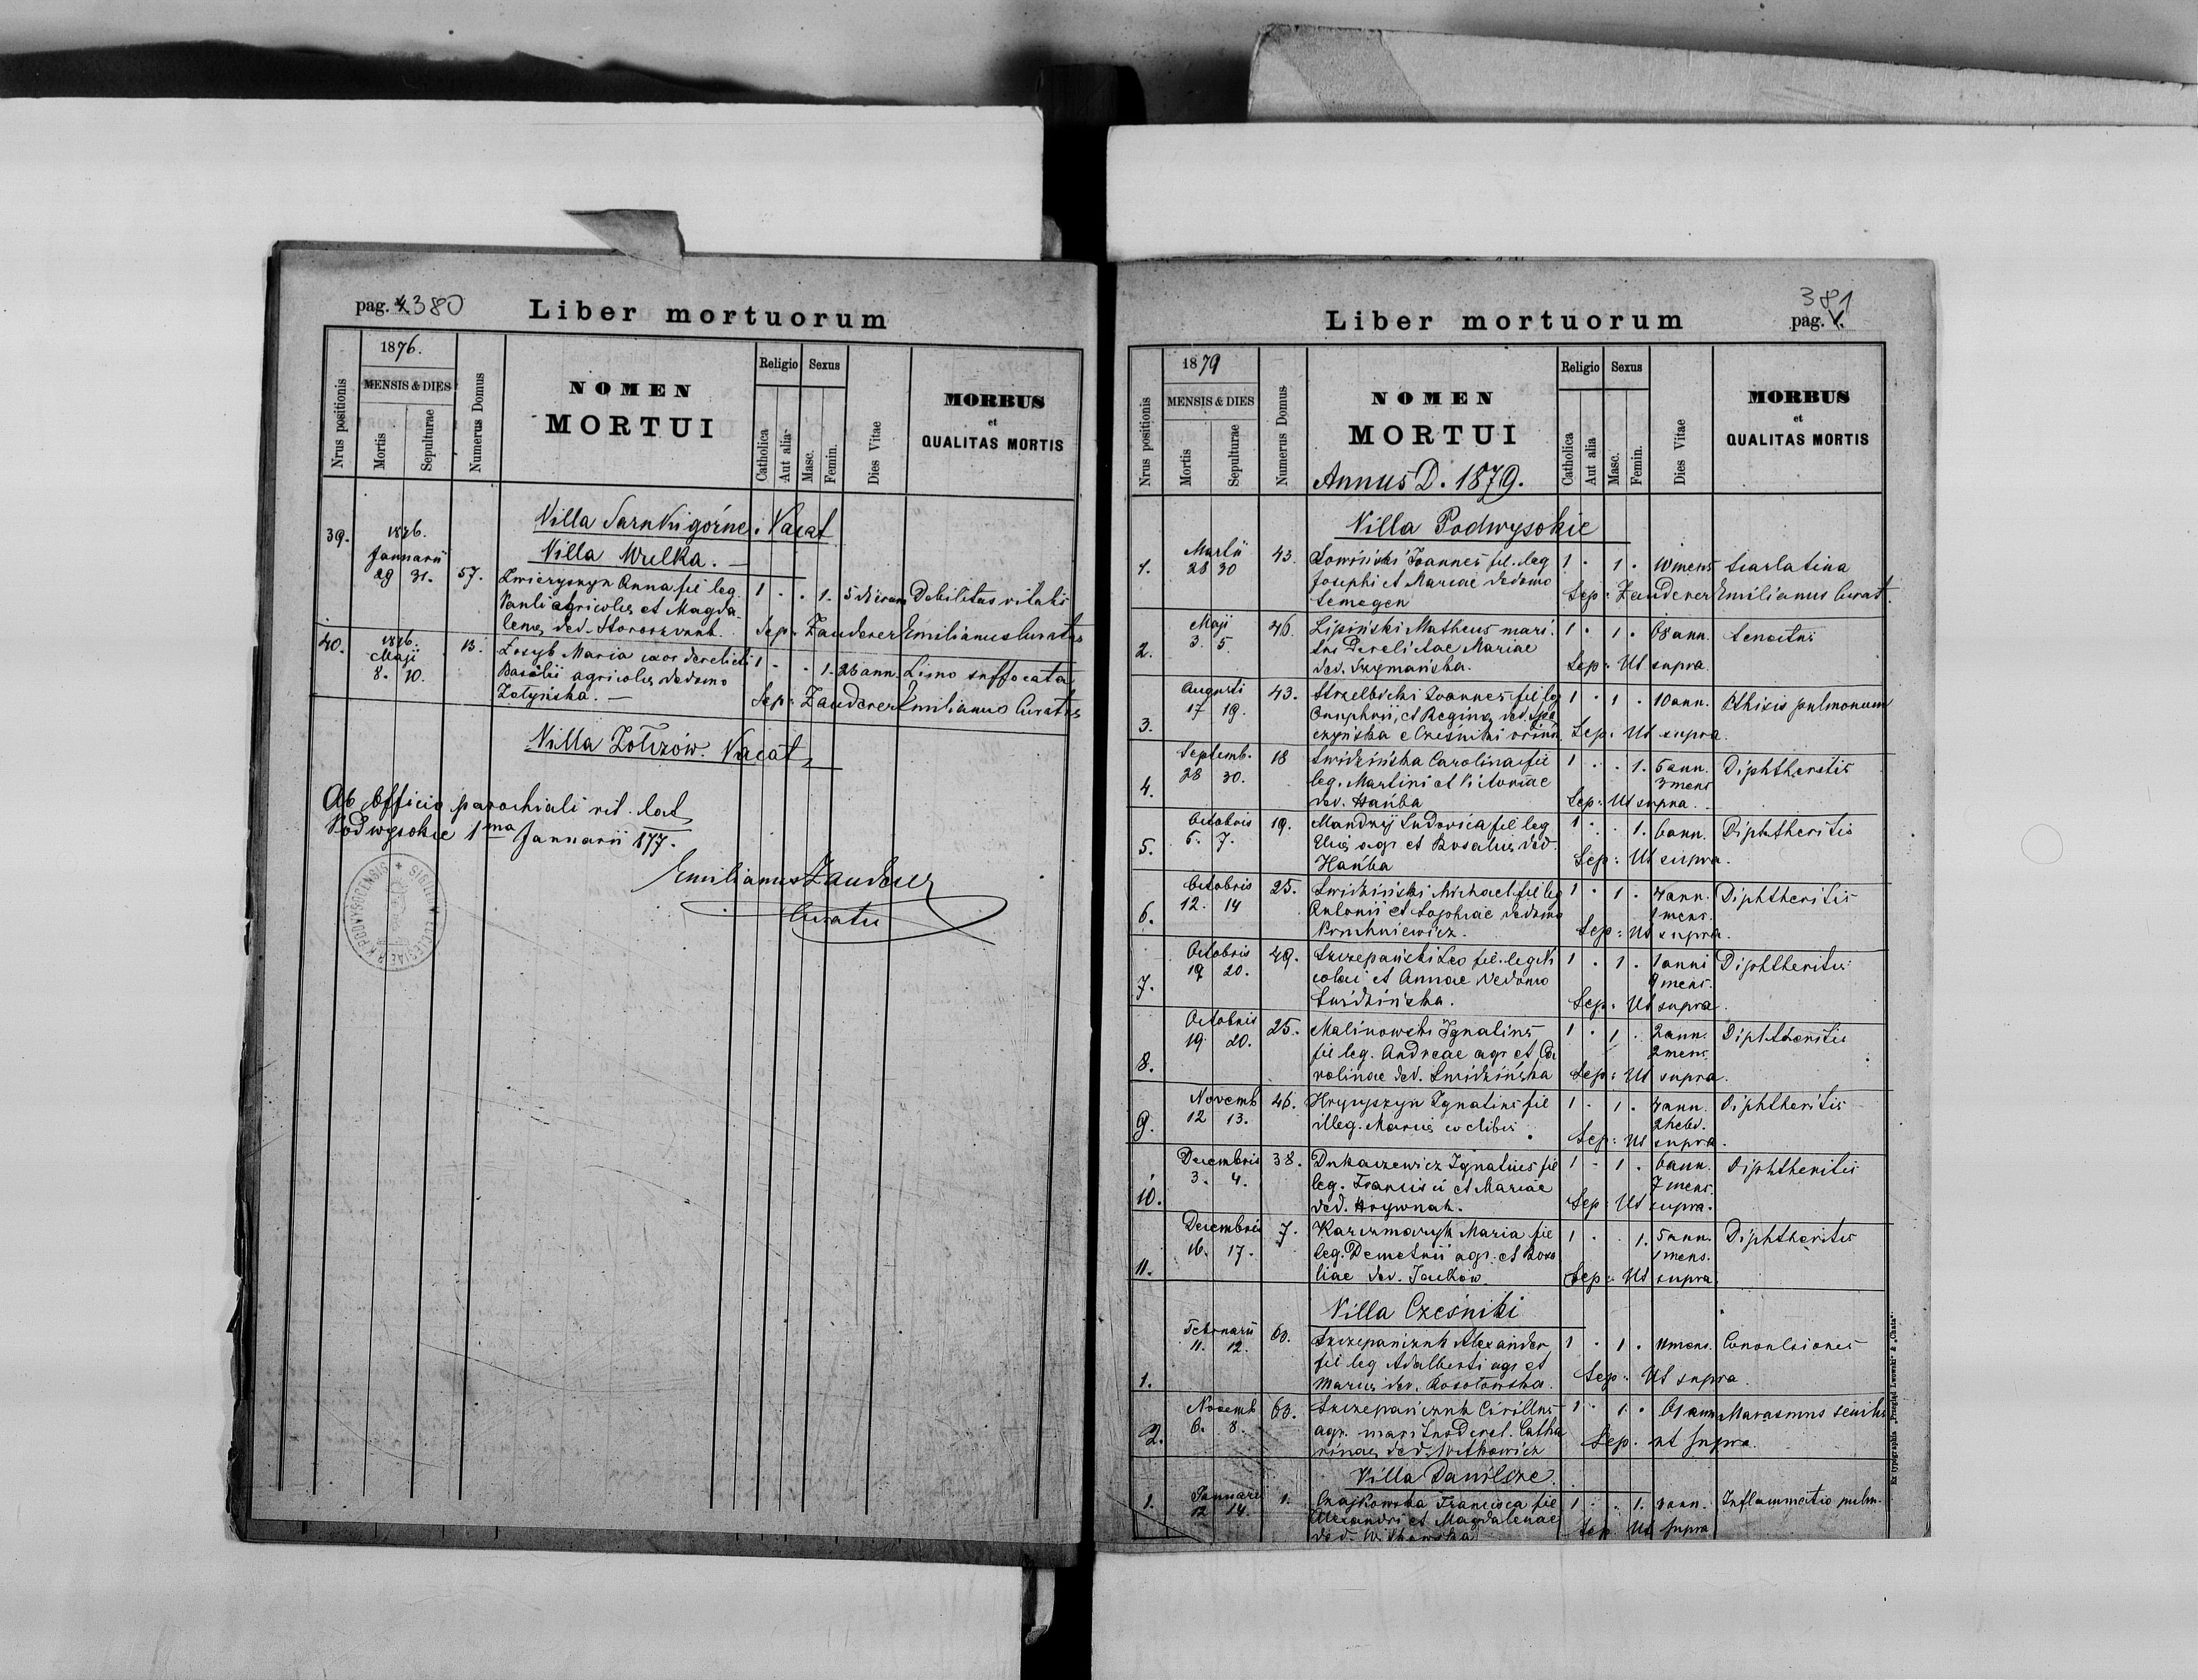 pag. 4 380
Liber mortuorum
Nrus positionis
1876.
MENSIS & DIES
Mortis
Sepulturae
Numerus Domus
NOMEN
MORTUI
Religio
Catholica
Aut alia
Sexus
Masc.
Femin.
Dies Vitae
MORBUS
et
QUALITAS MORTIS
Villa Sarnki górne. Vacat
Villa Wulka. —
39. 1876. Januarii 29 31. 57. Anna fil leg. 1 . . 1. 5 dierum Debilitas vitalis
Pauli agricolae et Magda
lenae ded. Sep. Zauderer Emilianus Curatus
40. 1876. Maji 8. 10. 13. Losyb Maria uxor derelicti 1 . . 1. 26 ann. Limo suffocata
Basilii agricolae de domo
Zatyńska. — Sep: Zauderer Emilianus Curatus
Villa Zółczów. Vacat
Ab Officio parochiali rit. lat
Podwysokie 1ma Januarii 877.
Emilianus Zauderer
Curatus
381
Liber mortuorum
pag. V.
Nrus positionis
1879
MENSIS & DIES
Mortis
Sepulturae
Numerus Domus
NOMEN
MORTUI
Annus D. 1879.
Religio
Catholica
Aut alia
Sexus
Masc.
Femin.
Dies Vitae
MORBUS
et
QUALITAS MORTIS
Villa Podwysokie
1. Martii 28 30 43. Joannes fil. leg 1 . 1 . 10 mens Scarlatina
Josephi et Mariae de domo
Semegen Sep: Zauderer Emilianus Curat.
2. Maji 3. 5. 46. Lipiński Matheus mari 1 . 1 . 68 ann. Senectus
tus Derelictae Mariae
ded. Szymańska. Sep: Ut supra.
3. Augusti 17 19. 43. Strzelbicki Joannes fil leg 1 . 1 . 10 ann. Pthisis pulmonum
Onuphrii, et Reginae ded.
e Cześniki Sep: Ut supra.
4. Septemb. 28 30. 18 Swidzińska Carolina fil 1 . . 1. 5 ann. 3 mens Diphtheritis
leg. Martini et Victoriae
ded. Hańba Sep: Ut supra.
5. Octobris 6. 7. 19. Mandryj Ludovica fil leg 1 . . 1. 6 ann. Diphtheritis
Eliae agr et Rosaliae ded.
Hańba Sep: Ut supra.
6. Octobris 12. 14 25. Swidziński Michael fil leg 1 . 1 . 4 ann. 1 mens. Diphtheritis
Antonii et Sophiae de domo
Sep: Ut supra.
7. Octobris 19 20. 49. Szczepański Leo fil. leg Ni 1 . 1 . 1 anni 9 mens. Diphtheritis
colai et Annae de domo
Swidzińska. Sep: Ut supra.
8. Octobris 19. 20. 25. Malinowski Ignatius 1 . 1 . 2 ann. 2 mens. Diphtheritis
fil leg. Andreae agr et Ca
rolinae ded. Swidzińska Sep: Ut supra.
9. Novemb 12 13. 46. Hryszyn Ignatius fil 1 . 1 . 4 ann. 2 hebd. Diphtheritis
illeg. Mariae coelibis. Sep: Ut supra.
10. Decembris 3. 4. 38. Dukaczewicz Ignatius fil 1 . 1 . 6 ann. 7 mens. Diphtheritis
leg. Francisci et Mariae
ded. Hrywnak. Sep: Ut supra.
11. Decembris 16. 17. 7. Karczmaryk Maria fil 1 . . 1. 5 ann. 1 mens. Diphtheritis
leg. Demetrii agr. et Rosa
liae ded. Jackow Sep: Ut supra
Villa Cześniki
1. Februarii 11. 12. 60. Szczepańczuk Alexander 1 . 1 . 11 mens. Convulsiones
fil leg Adalberti agr et
Mariae ded. Kosołowska. Sep: Ut supra.
2. Novemb 6. 8. 63. Szczepańczuk Cirillus 1 . 1 . 61 ann Marasmus senilis
agr. maritus Derel. Catha
rinae ded. Witkowicz Sep. ut supra.
Villa Danilcze.
1. Januarii 12 14. 1. Czajkowska Francisca fil 1 . . 1. ann. Inflammatio pulm.
Alexandri et Magdalenae
ded. Witkowska Sep Ut supra
Ex typographia „Przegląd Lwowski“ & „Chata“.